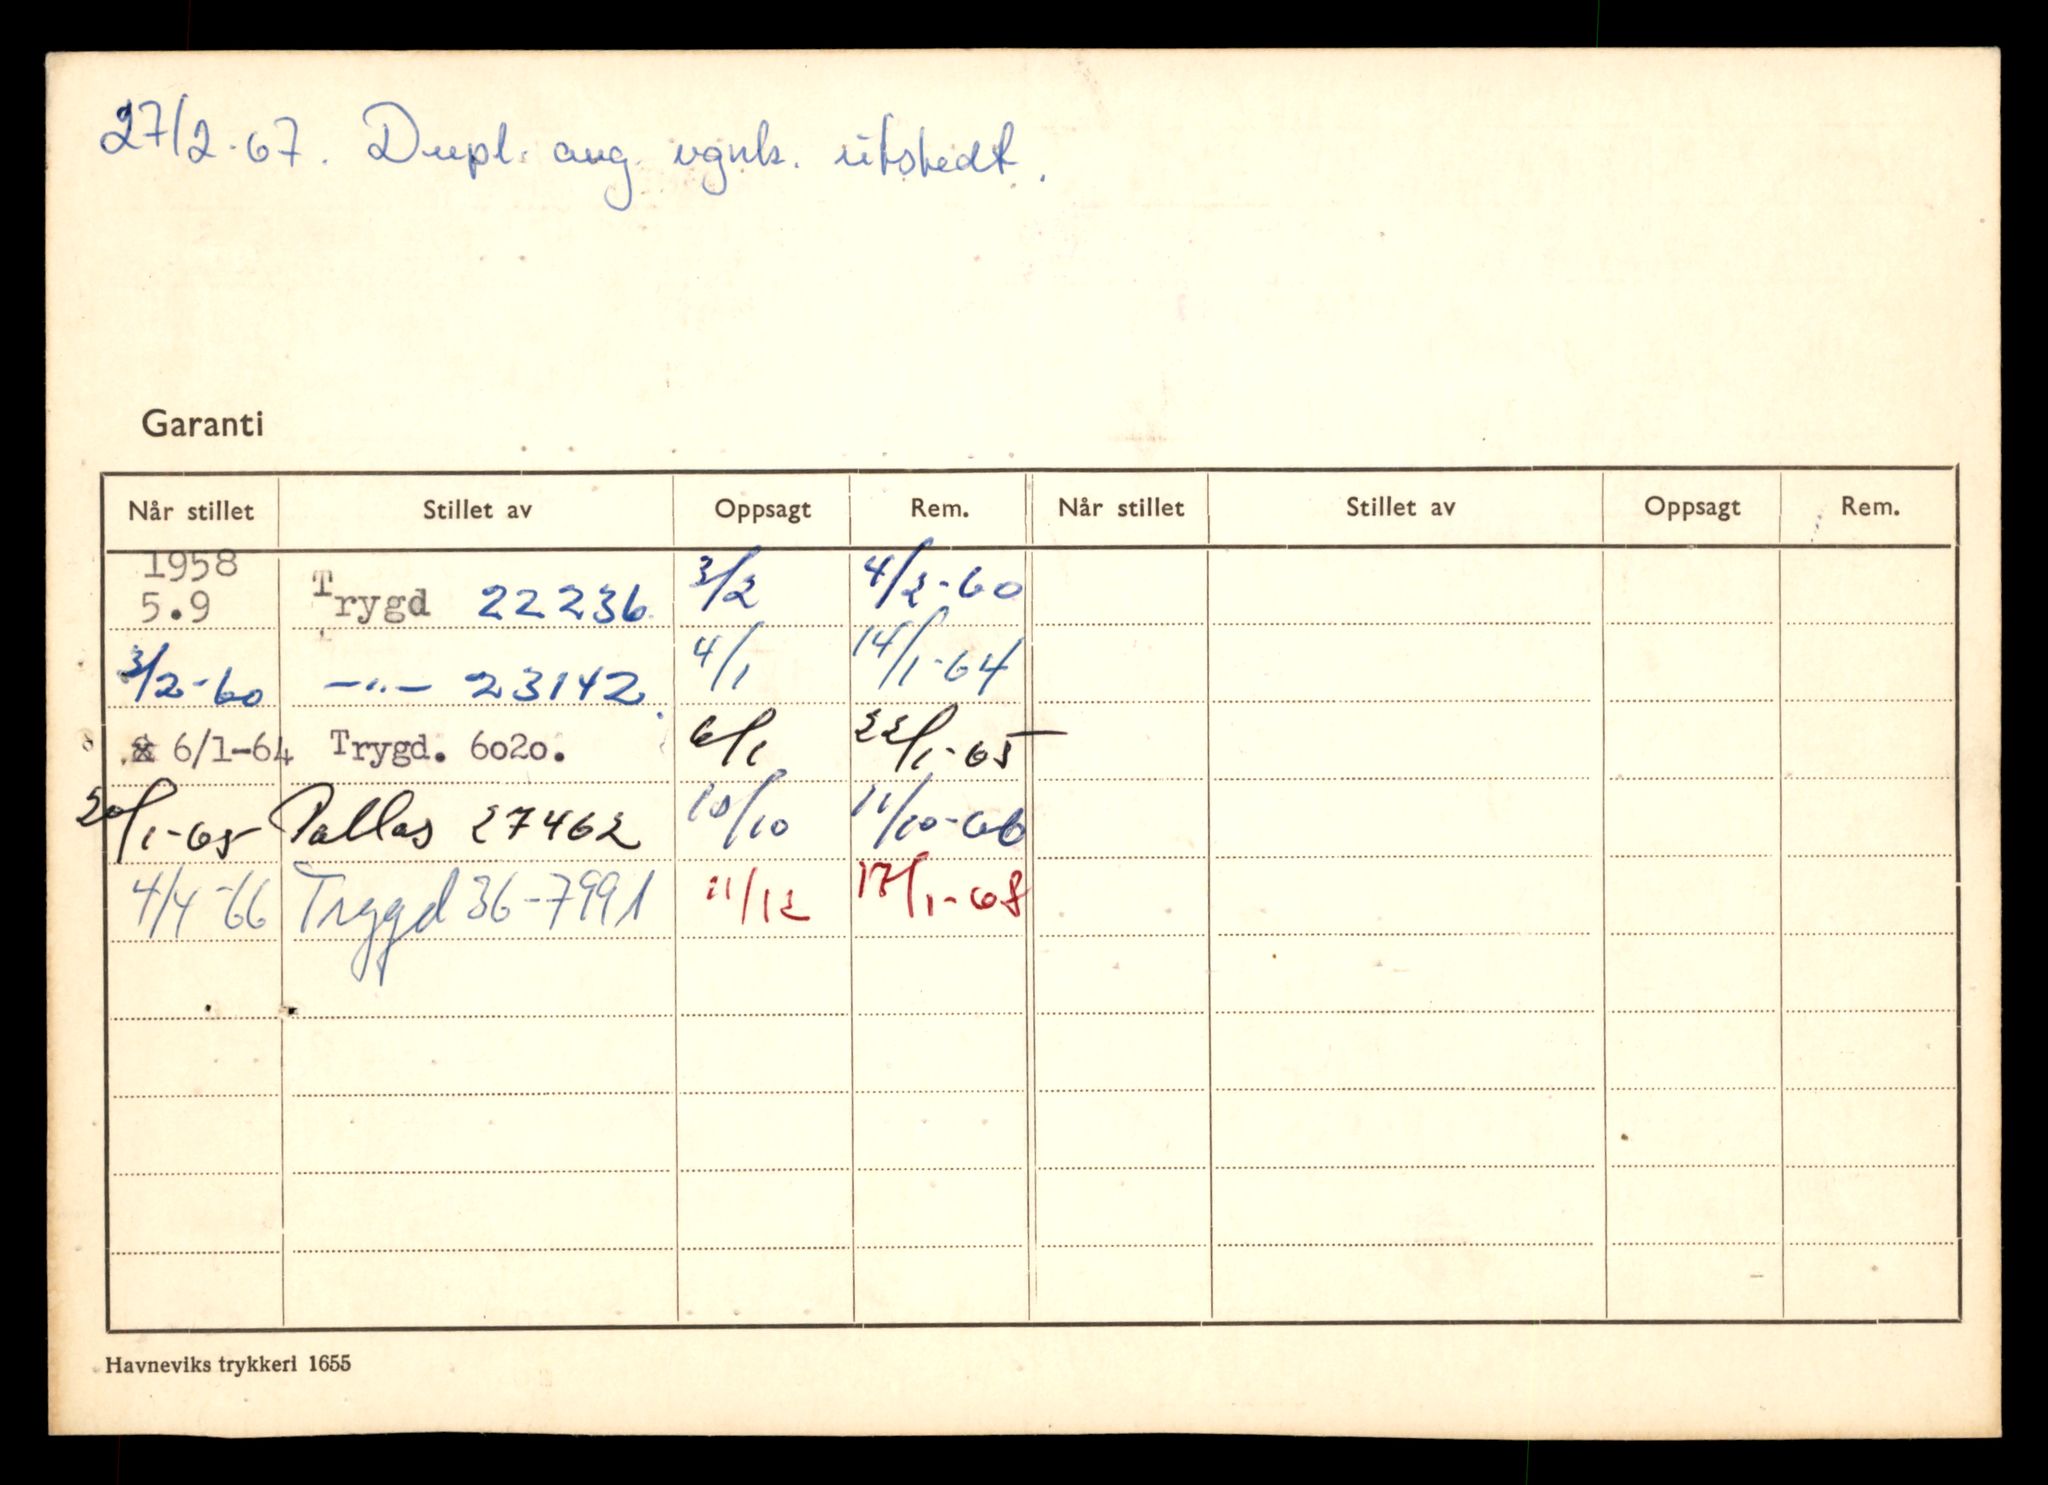 27/2-67. Dupl. ang. vgnk. utstedt.
Garanti
Når stillet Stillet av Oppsagt Rem. Når stillet Stillet av Oppsagt Rem.
1958
5.9 Trygd 22236 3/2 4/2-60
3/2-60 —"— 23142 4/1 14/1-64
6/1-64 Trygd. 6020. 6/1 22/1-65
20/1-65 Pallas 27462 10/10 11/10-66
4/4-66 Trygd 36-7991 11/12 17/1-68
Havneviks trykkeri 1655